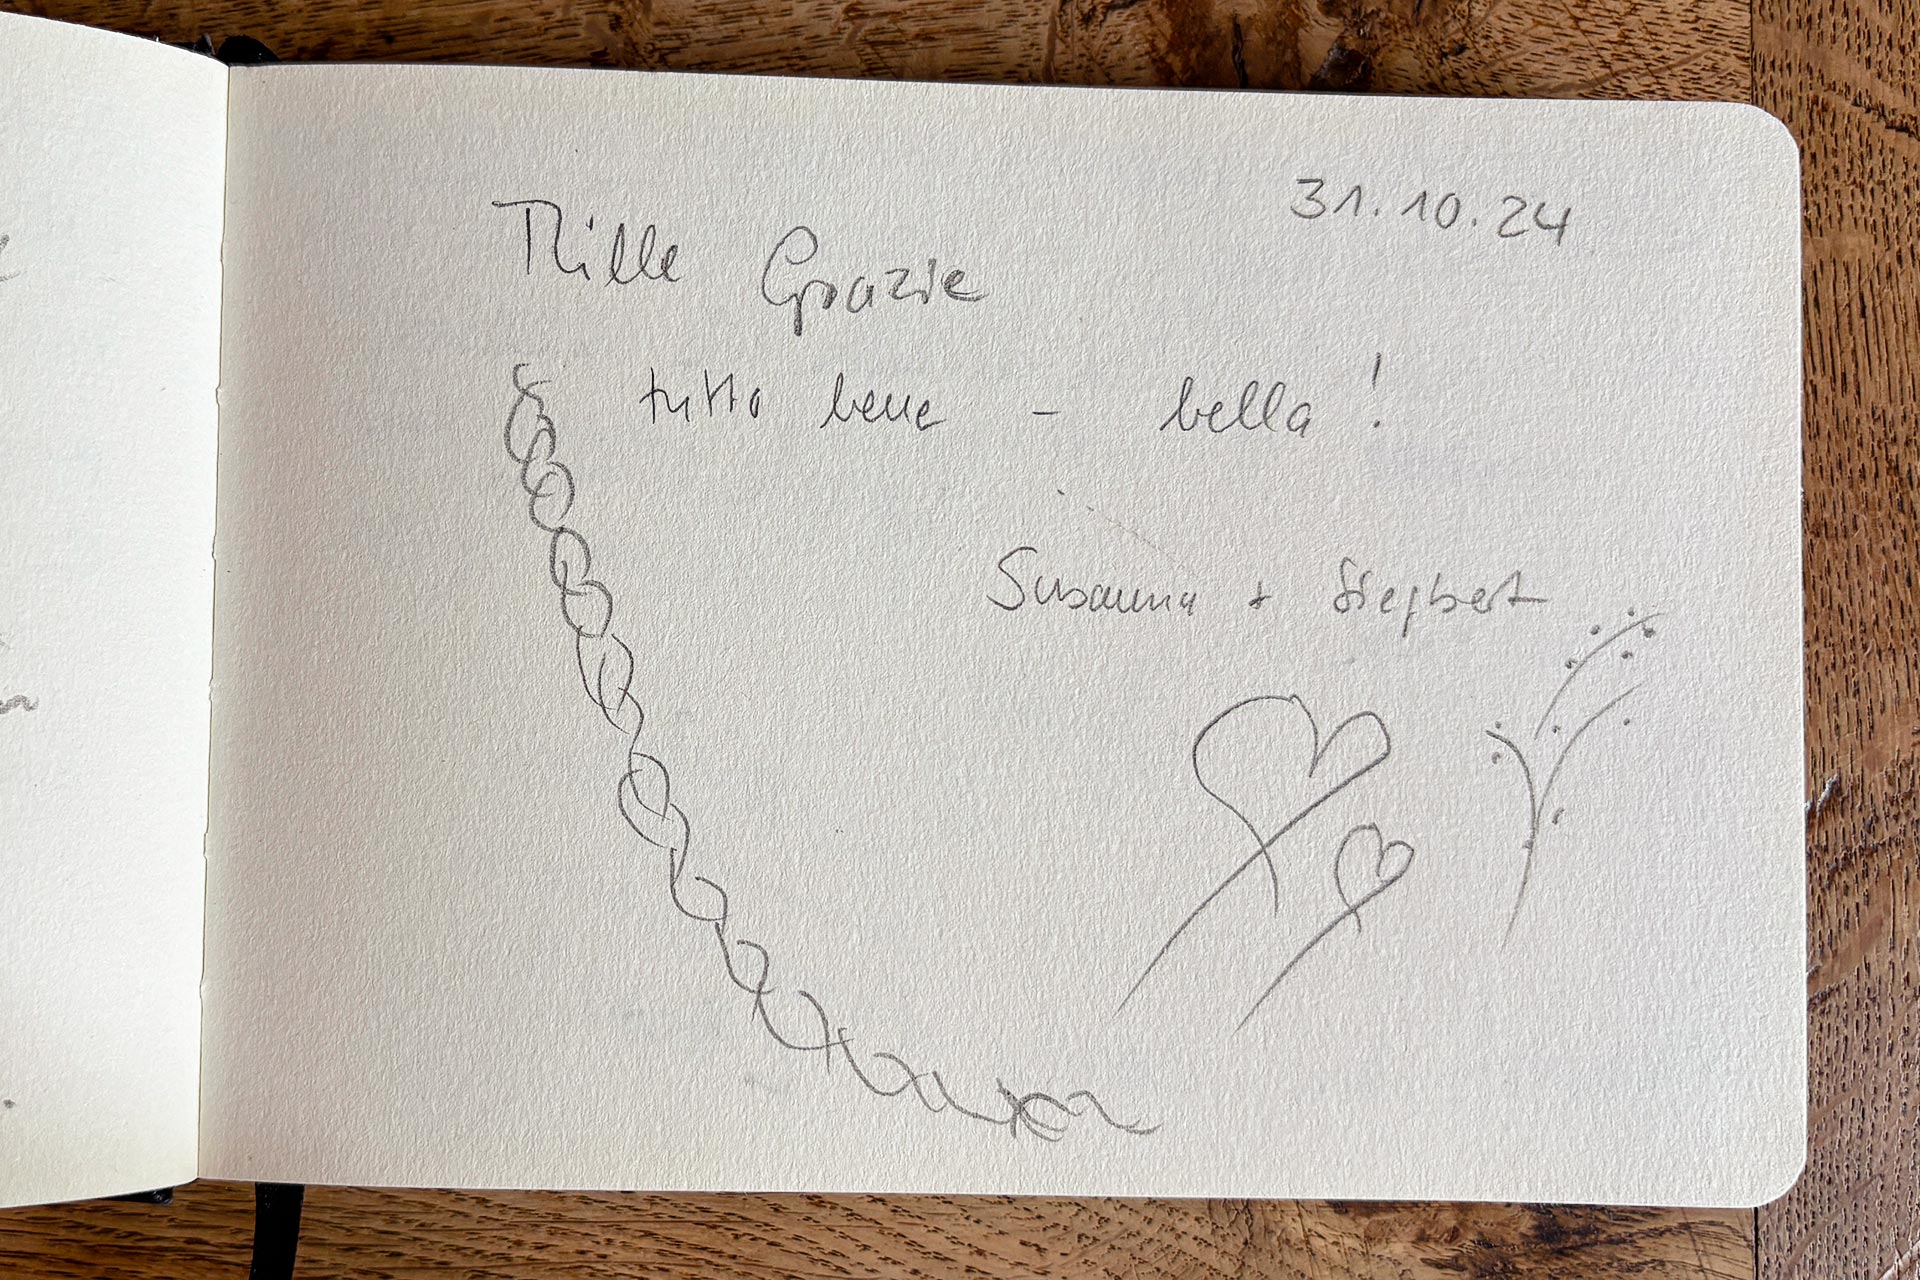 31.10.24
Mille Grazie
tutto bene - bella!
Susanna + Siegbert